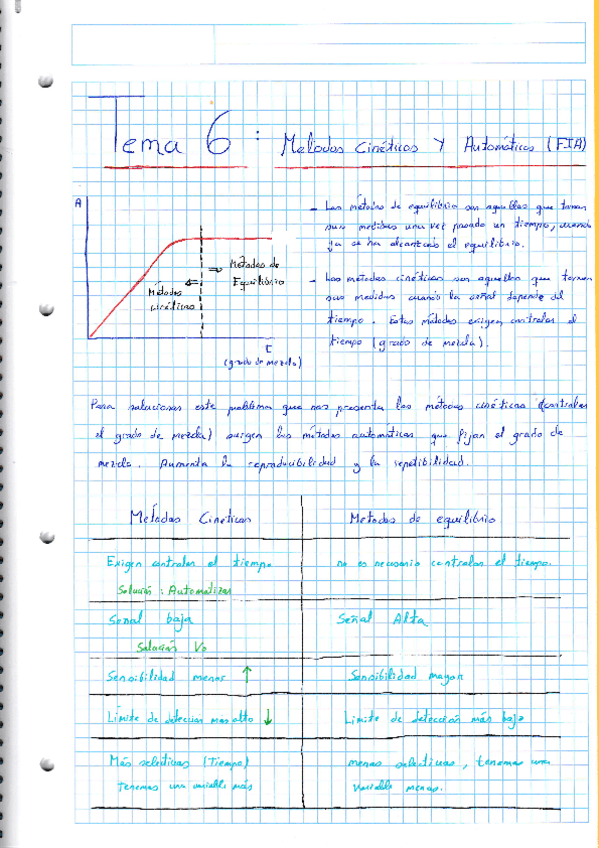 Tema 6: Metodos Cinéticos y Automáticos (FIA)
A
- Los métodos de equilibrio son aquellos que toman
sus medidas una vez pasado un tiempo, cuando
ya se ha alcanzado el equilibrio.
⇒ Metodos de
Equilibrio
⇐
Métodos
cinéticos
- Los métodos cinéticos son aquellos que toman
sus medidas cuando la señal depende del
tiempo. Estos métodos exigen controlar el
tiempo (grado de mezcla).
t
(grado de mezcla)
Para solucionar este problema que nos presenta los métodos cinéticos (controlar
el grado de mezcla) surgen los métodos automáticos que fijan el grado de
mezcla. Aumenta la reproducibilidad y la repetibilidad.
Métodos Cineticos
Metodos de equilibrio
Exigen controlar el tiempo
no es necesario controlar el tiempo.
Solución: Automatizar
Señal baja
Señal Alta
Solución Vo
Sensibilidad menor ↑
Sensibilidad mayor
Límite de detección mas alto ↓
Limite de detección más bajo
Más selectivos (Tiempo)
menos selectivos, tenemos una
tenemos una variable más
variable menos.